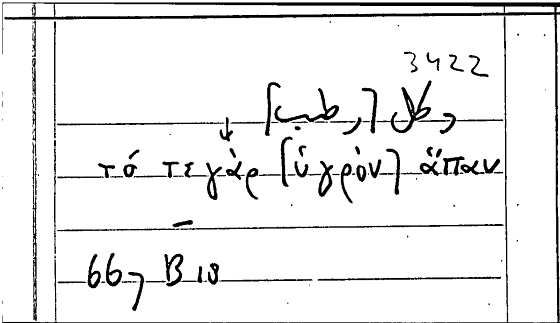 3422
وكل [رطب]
τό τε γὰρ [ὑγρὸν] ἅπαν
667 B 18